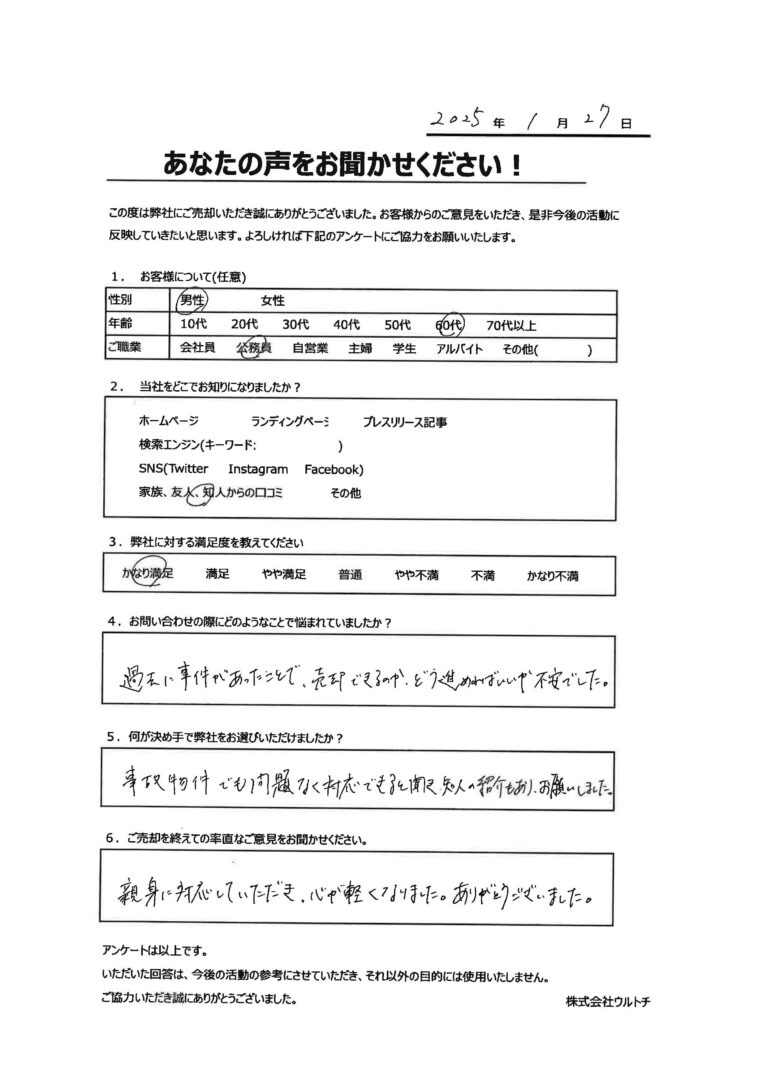 2025年 1月 27日
あなたの声をお聞かせください！
この度は弊社にご売却いただき誠にありがとうございました。お客様からのご意見をいただき、是非今後の活動に
反映していきたいと思います。よろしければ下記のアンケートにご協力をお願いいたします。
１． お客様について(任意)
性別 男性 女性
年齢 10代 20代 30代 40代 50代 60代 70代以上
ご職業 会社員 公務員 自営業 主婦 学生 アルバイト その他( )
２． 当社をどこでお知りになりましたか？
ホームページ ランディングページ プレスリリース記事
検索エンジン(キーワード: )
SNS(Twitter Instagram Facebook)
家族、友人、知人からの口コミ その他
３．弊社に対する満足度を教えてください
かなり満足 満足 やや満足 普通 やや不満 不満 かなり不満
４．お問い合わせの際にどのようなことで悩まれていましたか？
過去に事件があったことで、売却できるのか、どう進めればいいか不安でした。
５．何が決め手で弊社をお選びいただけましたか？
事故物件でも問題なく対応できると聞き、知人の紹介もあり、お願いしました。
６．ご売却を終えての率直なご意見をお聞かせください。
親身に対応していただき、心が軽くなりました。ありがとうございました。
アンケートは以上です。
いただいた回答は、今後の活動の参考にさせていただき、それ以外の目的には使用いたしません。
ご協力いただき誠にありがとうございました。
株式会社ウルトチ